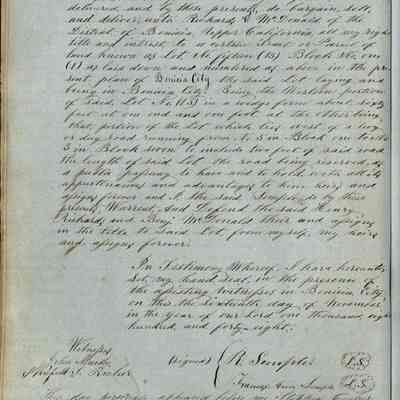 delivered, and by these presents, do bargain, sell,
and deliver, unto Richard, & McDonald of the
District of Benicia, Upper California, all my right
title and interest to a certain Tract or Parcel of
land known as Lot No fifteen (15) Block No. one
(1) as laid down and numbered as above in the pre-
sent plan of Benicia City, the said Lot laying and
being in Benicia City. Being the Western portion
of said, Lot No (15) in a wedge form about sixty
feet at one end and one foot at the other being
that portion of the Lot which lies west of a line
or dug road running from
in Block seven to include two feet of said road
the length of said lot the road being reserved, as
a public passway to have and to hold with all its
appurtenances and advantages to them heirs and
assigns forever and I the said Semple do by these
presents Warrent, and Defend the said Henry,
Richard, and Benj. McDonald their and assigns
in the title to said Lot from myself, my heirs
and assigns forever.
In Testimony Whereof, I have hereunto
set my hand & seal, in the presence of
the assisting witnesses in Benicia City
on this the Sixteenth day of November
in the year of our Lord one thousand, eight
hundred, and forty-eight.
Witnesses
(signed) R. Semple L.S.
Frances Ann Semple L.S.
This day personally appeared before me Stephen Cooper